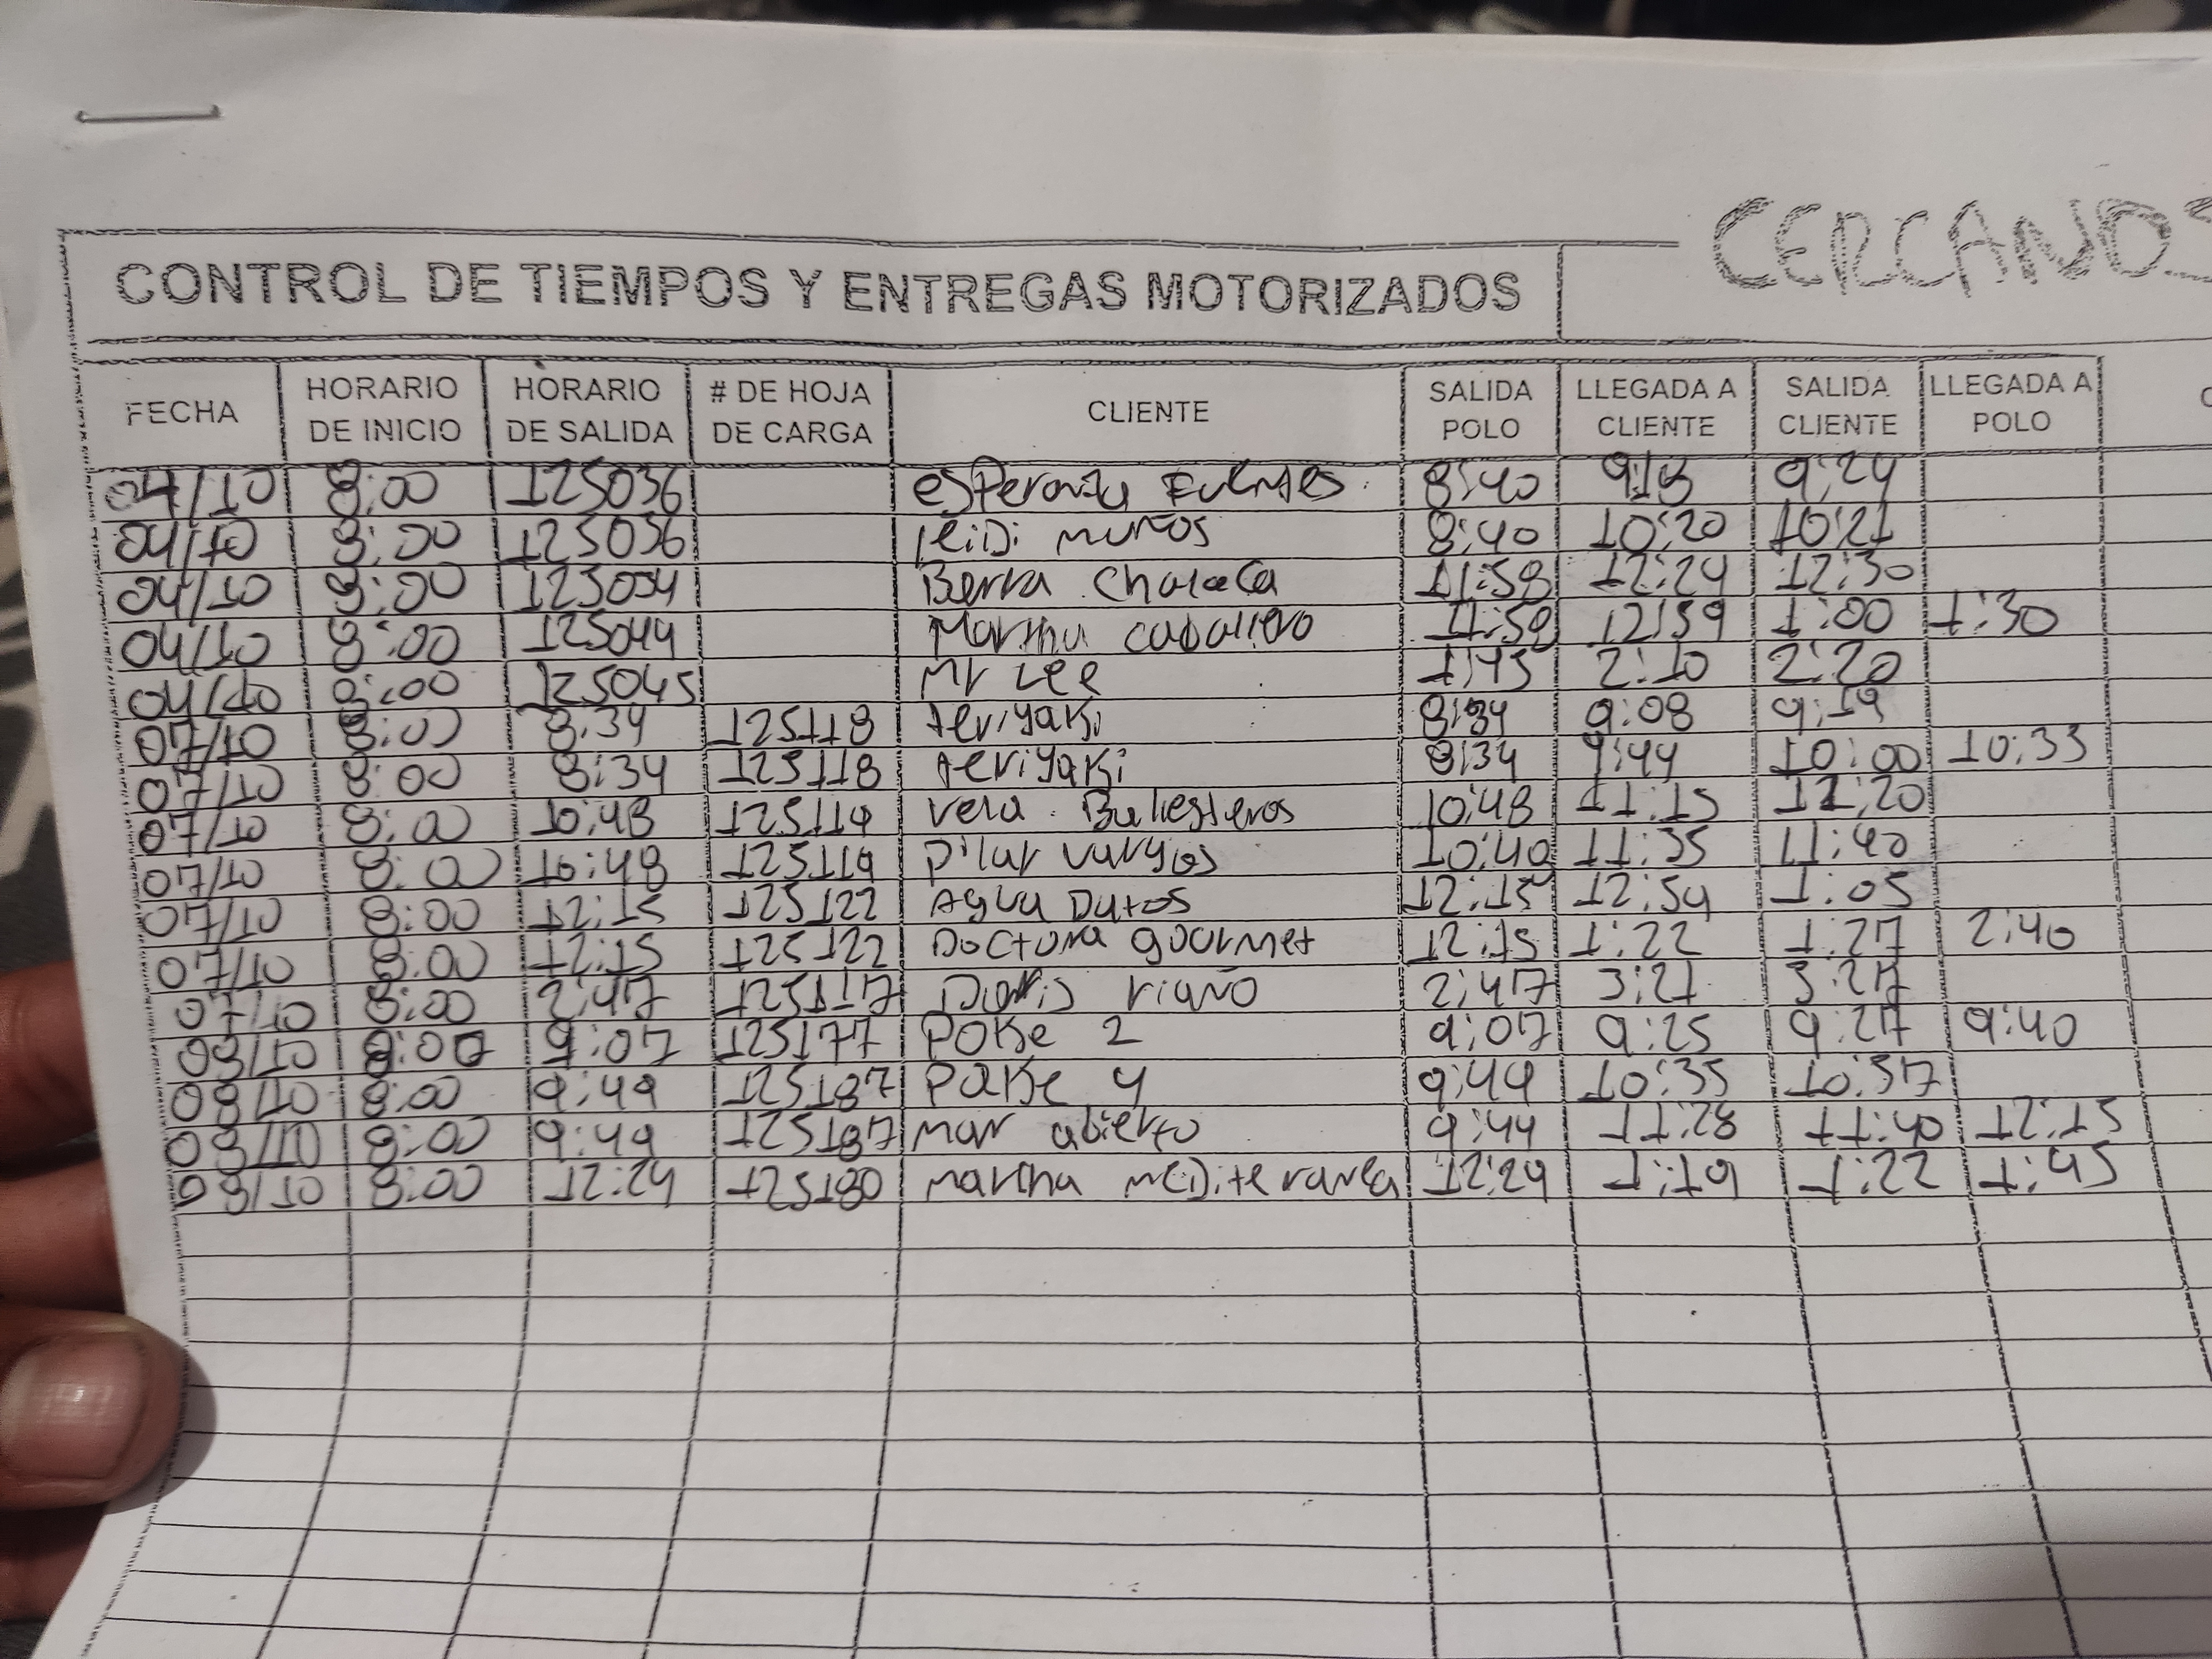 CERCANOS
CONTROL DE TIEMPOS Y ENTREGAS MOTORIZADOS
FECHA HORARIO DE INICIO HORARIO DE SALIDA # DE HOJA DE CARGA CLIENTE SALIDA POLO LLEGADA A CLIENTE SALIDA CLIENTE LLEGADA A POLO
04/10 8:00 125036 esperanza Fuentes 8:40 9:18 9:24
04/10 8:00 125036 leidi muños 8:40 10:20 10:21
04/10 8:00 125034 Barra Chalaca 11:58 12:24 12:30
04/10 8:00 125044 Martha caballero 11:58 12:59 1:00 1:30
04/10 8:00 125045 Mr Lee 1:45 2:10 2:20
07/10 8:00 8:34 125118 teriyaki 8:34 9:08 9:19
07/10 8:00 8:34 125118 teriyaki 8:34 9:44 10:00 10:33
07/10 8:00 10:48 125119 vera Ballesteros 10:48 11:15 11:20
07/10 8:00 10:48 125119 Pilar vargas 10:48 11:35 11:40
07/10 8:00 12:15 125122 Agua Datos 12:15 12:54 1:05
07/10 8:00 12:15 125122 Doctora gourmet 12:15 1:22 1:27 2:40
07/10 8:00 2:47 125117 Doris riaño 2:47 3:21 3:27
08/10 8:00 9:07 125177 POKe 2 9:07 9:25 9:27 9:40
08/10 8:00 9:49 125187 POKe 4 9:49 10:35 10:37
08/10 8:00 9:49 125187 mar abierto 9:49 11:28 11:40 12:15
08/10 8:00 12:24 125180 martha mediterranea 12:24 1:19 1:22 1:45